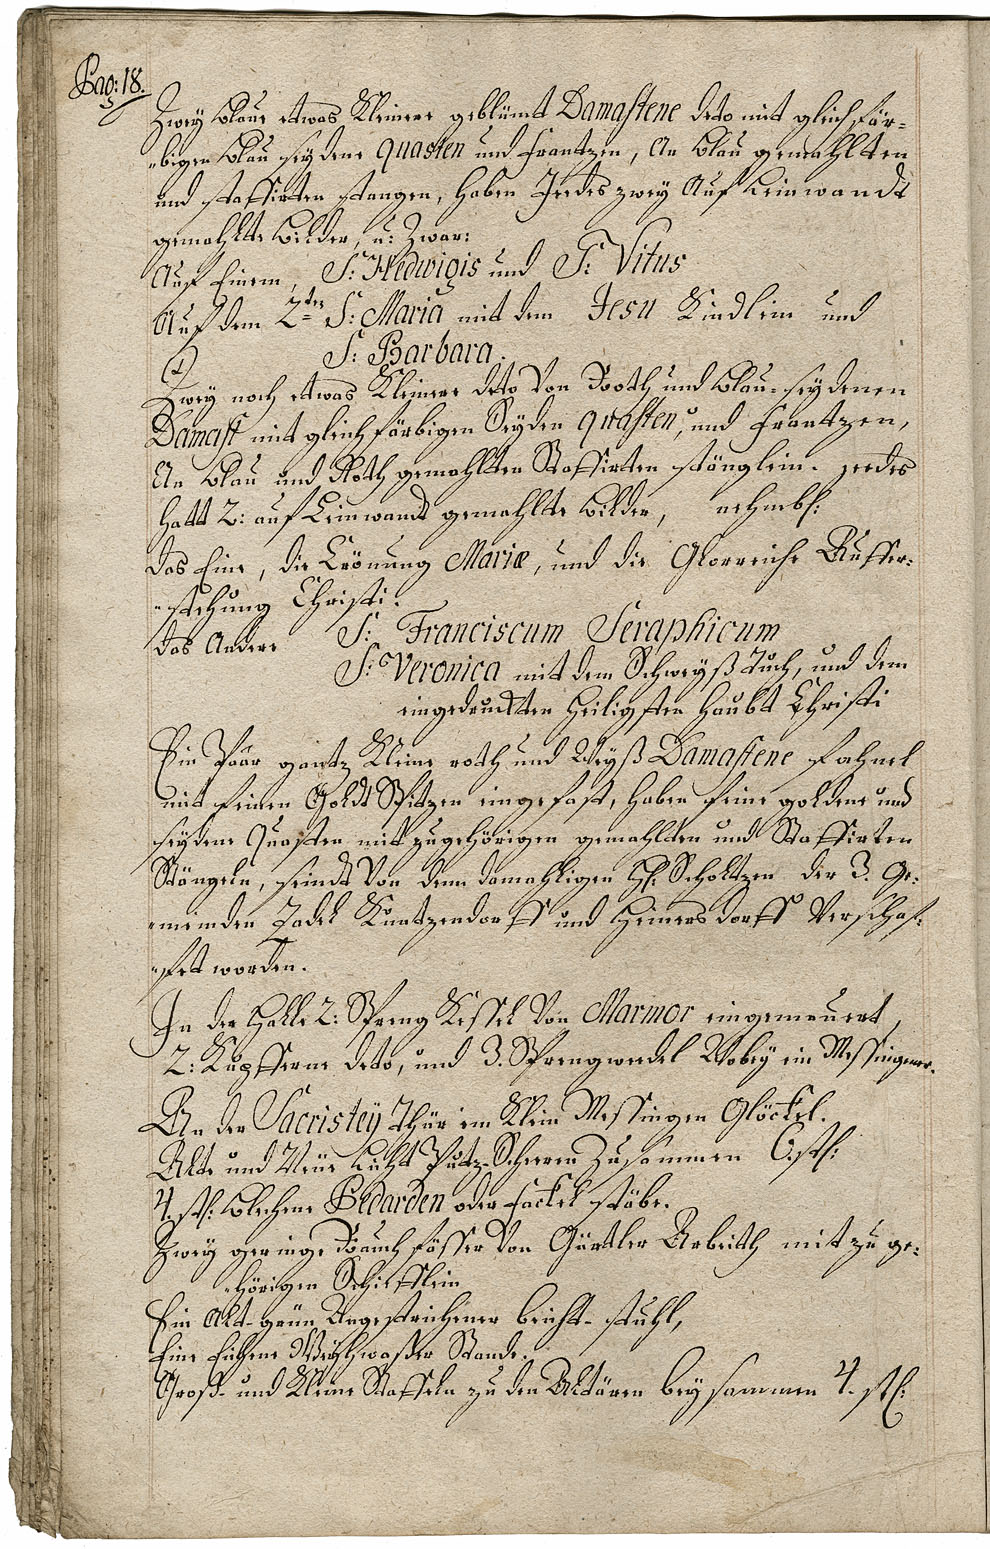 Pag: 18.
Zwey blaue etwas kleinere geblümt Damastene deto mit gleich fär=
=bigen blau seydene quasten und Frantzen, An blau gemahlten
und staffirten stangen, haben Jeedes zwey Auf Leinwandt
gemahlte bilder, u: Zwar:
Auf Einem, S: Hedwigis und S: Vitus
Auf dem 2ten S: Maria mit dem Jesu Kindlein und
S: Barbara.
Zwey noch etwas kleinere deto von Rooth und blau-seydenen
Damast mit gleich färbigen Seyden quasten, und Frantzen,
An blau und Roth gemahlten Staffirten stänglein. jeedes
hatt 2: auf Leinwandt gemahlte bilder, nehmbl:
das Eine, die Crönung Mariæ, und die Glorreiche Auffer=
=stehung Christi.
das Andere S: Franciscum Seraphicum
S: Veronica mit dem Schweyß Tuch, und dem
eingedruckten Heiligsten Haubt Christi
Ein Paar gantz kleine roth und Weyß Damastene Fahnel
mit feinen Goldt Spitzen eingefast, haben feine goldene und
seydene Quasten mit zugehörigen gemahlten und Staffirten
Stängeln, seindt von denn damahligen H: Scholtzen der 3. Ge=
=meinden Zadel Kuntzendorff und Heinersdorff Verschaf=
=fet worden.
In der Halle 2: Spreng Kessel von Marmor eingemeuert,
2: Kupfferne deto, und 3. Sprengwedel Wobey ein Messingener.
An der Sacristey Thür ein klein Messingen Glöckel.
Alte und Neue Licht Putz-Scheeren Zusammen 6. st:
4. st: blechene Bedarden oder fackel stäbe.
Zwey geringe Rauch fässer von Gürtler Arbeith mit zu ge=
=hörigen Schiefflein
Ein Alt-grün Angestrichener beicht-stuhl,
Eine Eichene Weychwasser Stande.
Groß- und kleine Staffeln zu den Altären beysammen 4. st: